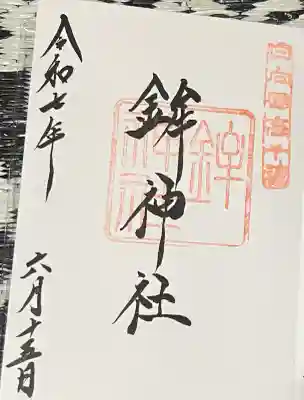 鉾神社
鉾
神社
令和七年
六月十五日